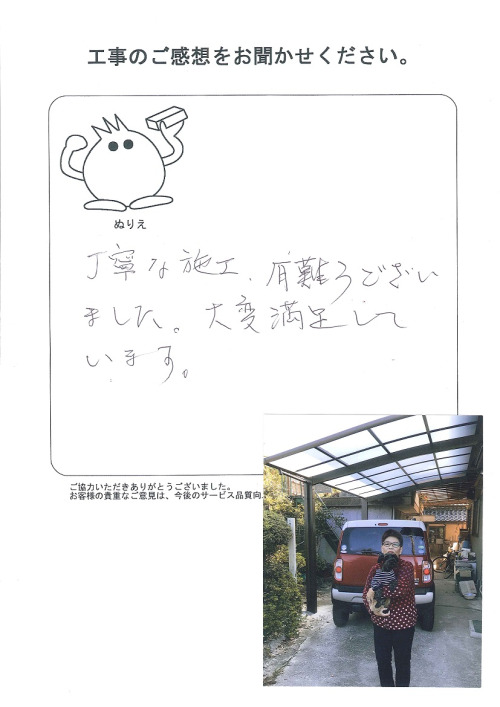 工事のご感想をお聞かせください。
ぬりえ
丁寧な施工、有難うござい
ました。大変満足して
います。
ご協力いただきありがとうございました。
お客様の貴重なご意見は、今後のサービス品質向